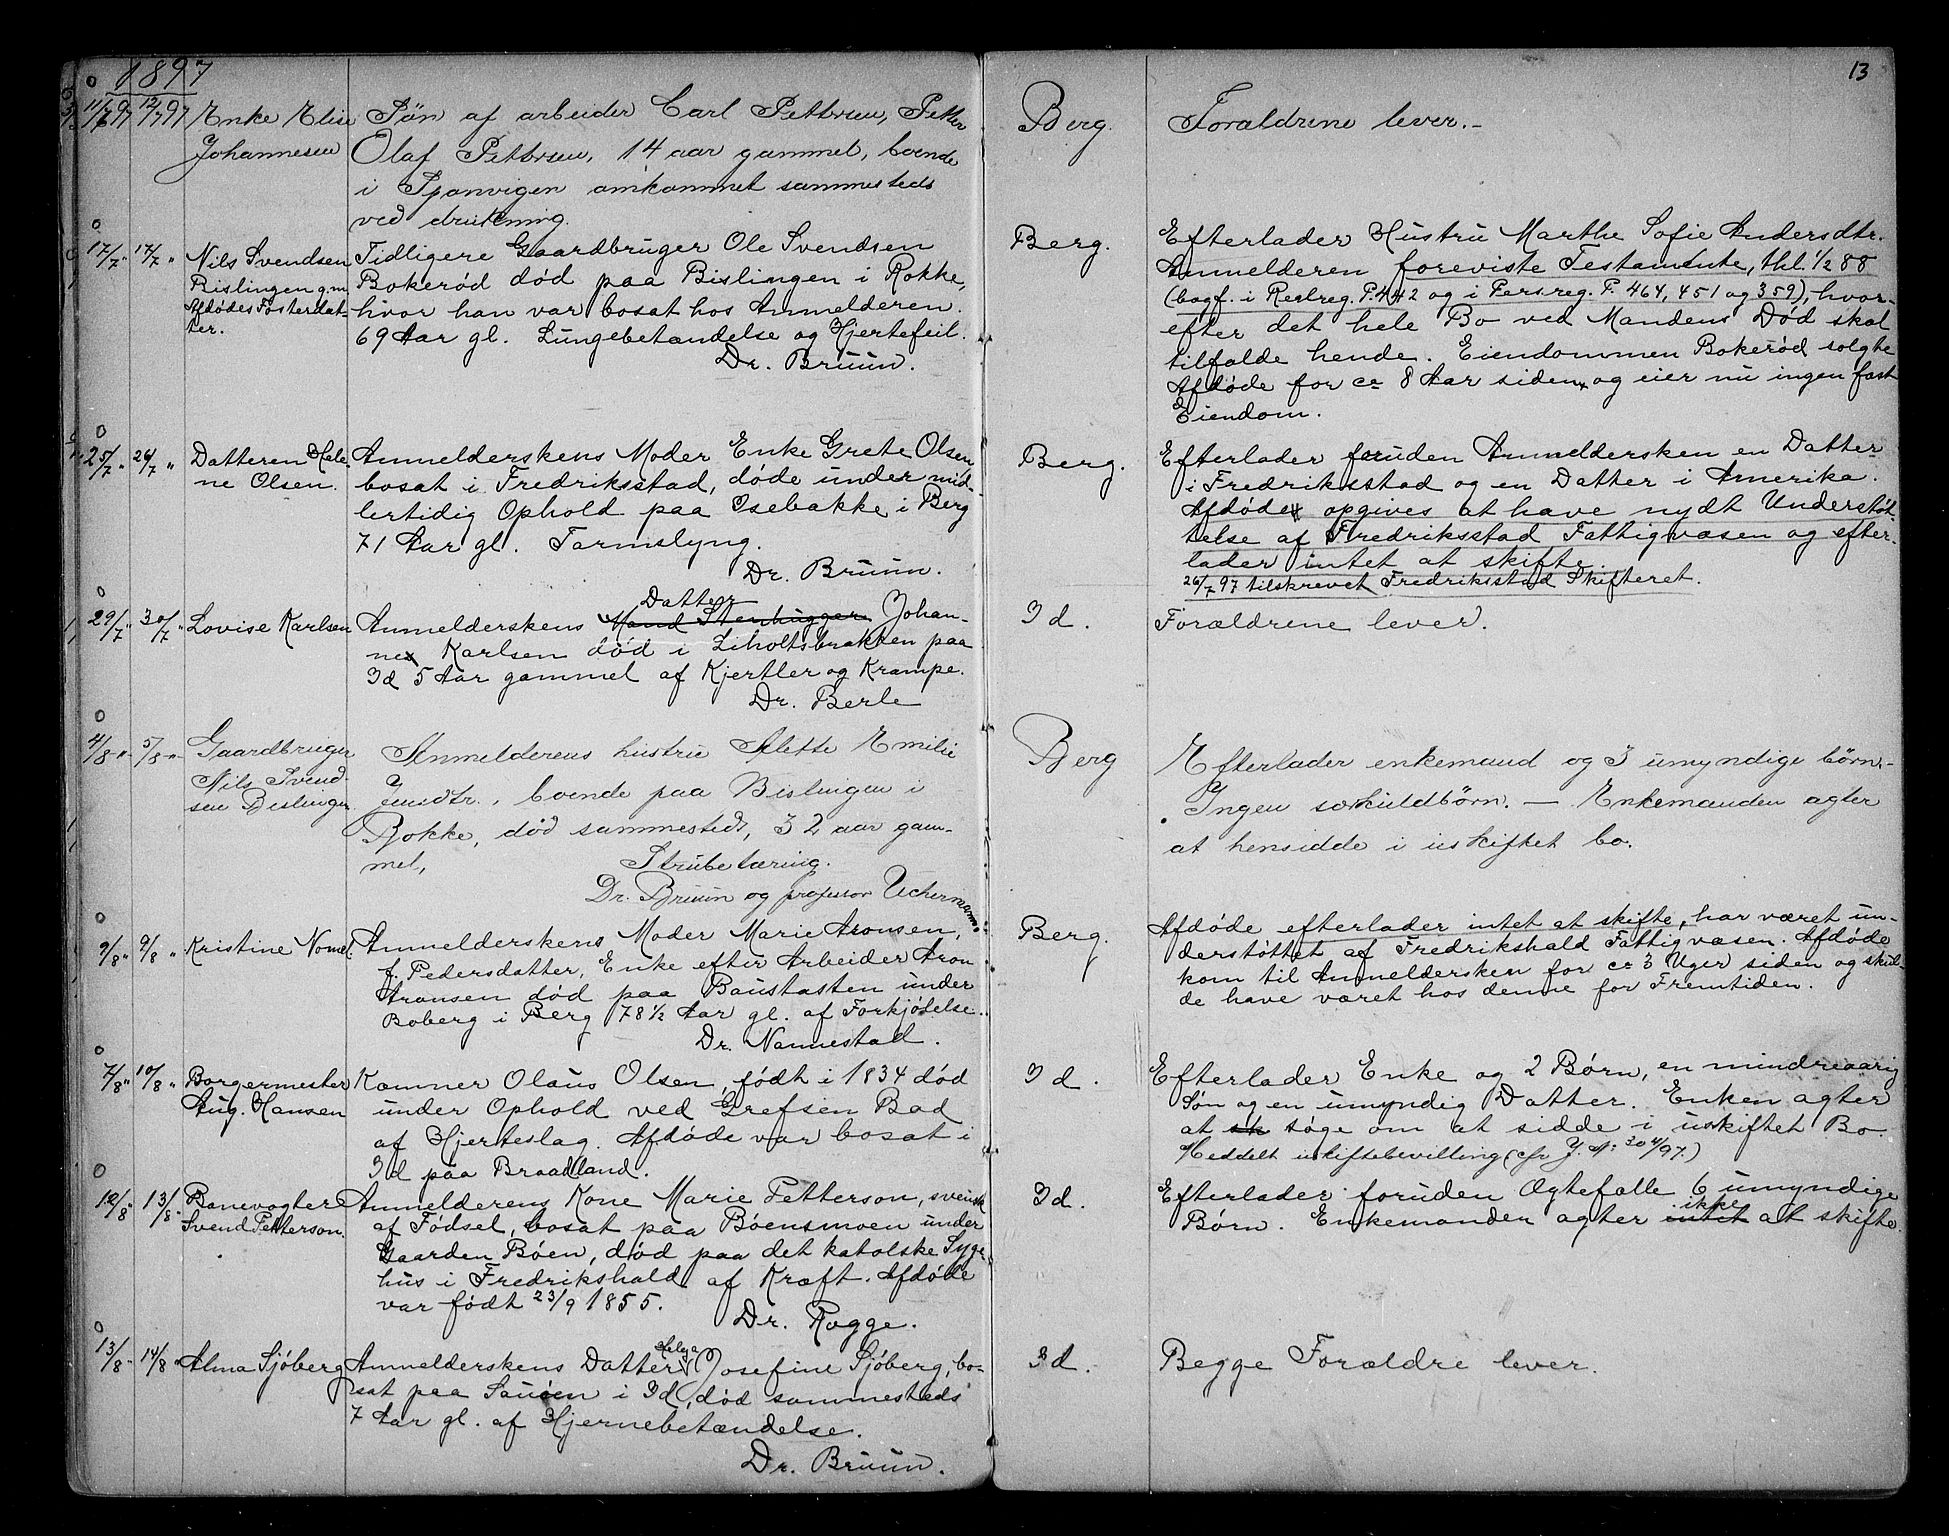 13
1897
11/6 97 12/7 97 Enke Elise Johannesen
Søn af arbeider Carl Pettersen, Petter
Olaf Pettersen, 14 aar gammel, boende
i Sponvigen omkommet sammesteds
ved drukning.
Berg.
Forældrene lever.-
17/7 " 17/7 "
Nils Svendsen
Bislingen g.m.
Afdødes Fosterdat-
ter.
Tidligere Gaardbruger Ole Svendsen
Bokerød død paa Bislingen i Rokke,
hvor han var bosat hos Anmelderen.
69 Aar gl. Lungebetændelse og Hjertefeil.
Dr. Bruun.
Berg.
Efterlader Hustru Marthe Sofie Andersdtr.
Anmelderen foreviste Testamente, thl. 1/2 88
(bogf. i Realreg. P. 442 og i Persreg. P. 464, 451 og 359), hvor-
efter det hele Bo ved Mandens Død skal
tilfalde hende. Eiendommen Bokerød solgte
Afdøde for ca 8 Aar siden og eier nu ingen fast
Eiendom.
25/7 " 26/7 "
Datteren Hele-
ne Olsen.
Anmelderskens Moder Enke Grete Olsen
bosat i Fredriksstad, døde under mid-
lertidig Ophold paa Isebakke i Berg
71 Aar gl. Tarmslyng.
Dr. Bruun.
Berg.
Efterlader foruden Anmeldersken en Datter
i Fredriksstad og en Datter i Amerika.
Afdøde opgives at have nydt Understøt-
telse af Fredriksstad Fattigvæsen og efter-
lader intet at skifte.
26/7 97 tilskrevet Fredriksstad Skifteret.
29/7 " 30/7 "
Lovise Karlsen
Datter
Anmelderskens Mand Stenhugger Johan-
ne Karlsen død i Liholtsbrakken paa
Id 5 Aar gammel af Kjertler og Krampe.
Dr. Berle
Id.
Forældrene lever.
4/8 " 5/8 "
Gaardbruger
Nils Svend-
sen Bislingen
Anmelderens hustru Alette Emilie
Jensdtr., boende paa Bislingen i
Rokke, død sammesteds, 32 aar gam-
mel, Strubetæring.
Dr. Bruun og professor Uchermann.
Berg
Efterlader enkemand og 3 umyndige børn.-
Ingen særkuldbørn. - Enkemanden agter
at hensidde i uskiftet bo.
9/8 " 9/8 "
Kristine Nomel.
Anmelderskens Moder Marie Aronsen,
f. Pedersdatter, Enke efter Arbeider Aron
Aronsen død paa Baustasten under
Boberg i Berg 78 1/2 Aar gl. af Forkjølelse.
Dr. Nannestad.
Berg.
Afdøde efterlader intet at skifte, har været un-
derstøttet af Fredrikshald Fattigvæsen. Afdøde
kom til Anmeldersken for ca 3 Uger siden og skul-
de have været hos denne for Fremtiden.
7/8 " 10/8 "
Borgermester
Aug. Hansen
Kæmner Olaus Olsen, født i 1834 død
under Ophold ved Grefsen Bad
af Hjerteslag. Afdøde var bosat i
Id paa Braatland.
Id.
Efterlader Enke og 2 Børn, en mindreaarig
Søn og en umyndig Datter. Enken agter
at sk søge om at sidde i uskiftet Bo.
Meddelt uskiftebevilling (cfr J. No 304/97.)
12/8 " 13/8 -
Banevogter
Svend Petterson.
Anmelderens Kone Marie Petterson, svensk
af Fødsel, bosat paa Bøensmoen under
Gaarden Bøen, død paa det katolske Syge-
hus i Fredrikshald af Kræft. Afdøde
var født 23/9 1855.
Dr. Rogge.
Id.
Efterlader foruden Ægtefælle 6 umyndige
ikke
Børn. Enkemanden agter intet at skifte.
13/8 - 14/8 "
Alma Sjöberg
Helga
Anmelderskens Datter Josefine Sjöberg, bo-
sat paa Sauøen i Id, død sammesteds
7 Aar gl. af Hjernebetændelse.
Dr. Bruun.
Id.
Begge Forældre lever.